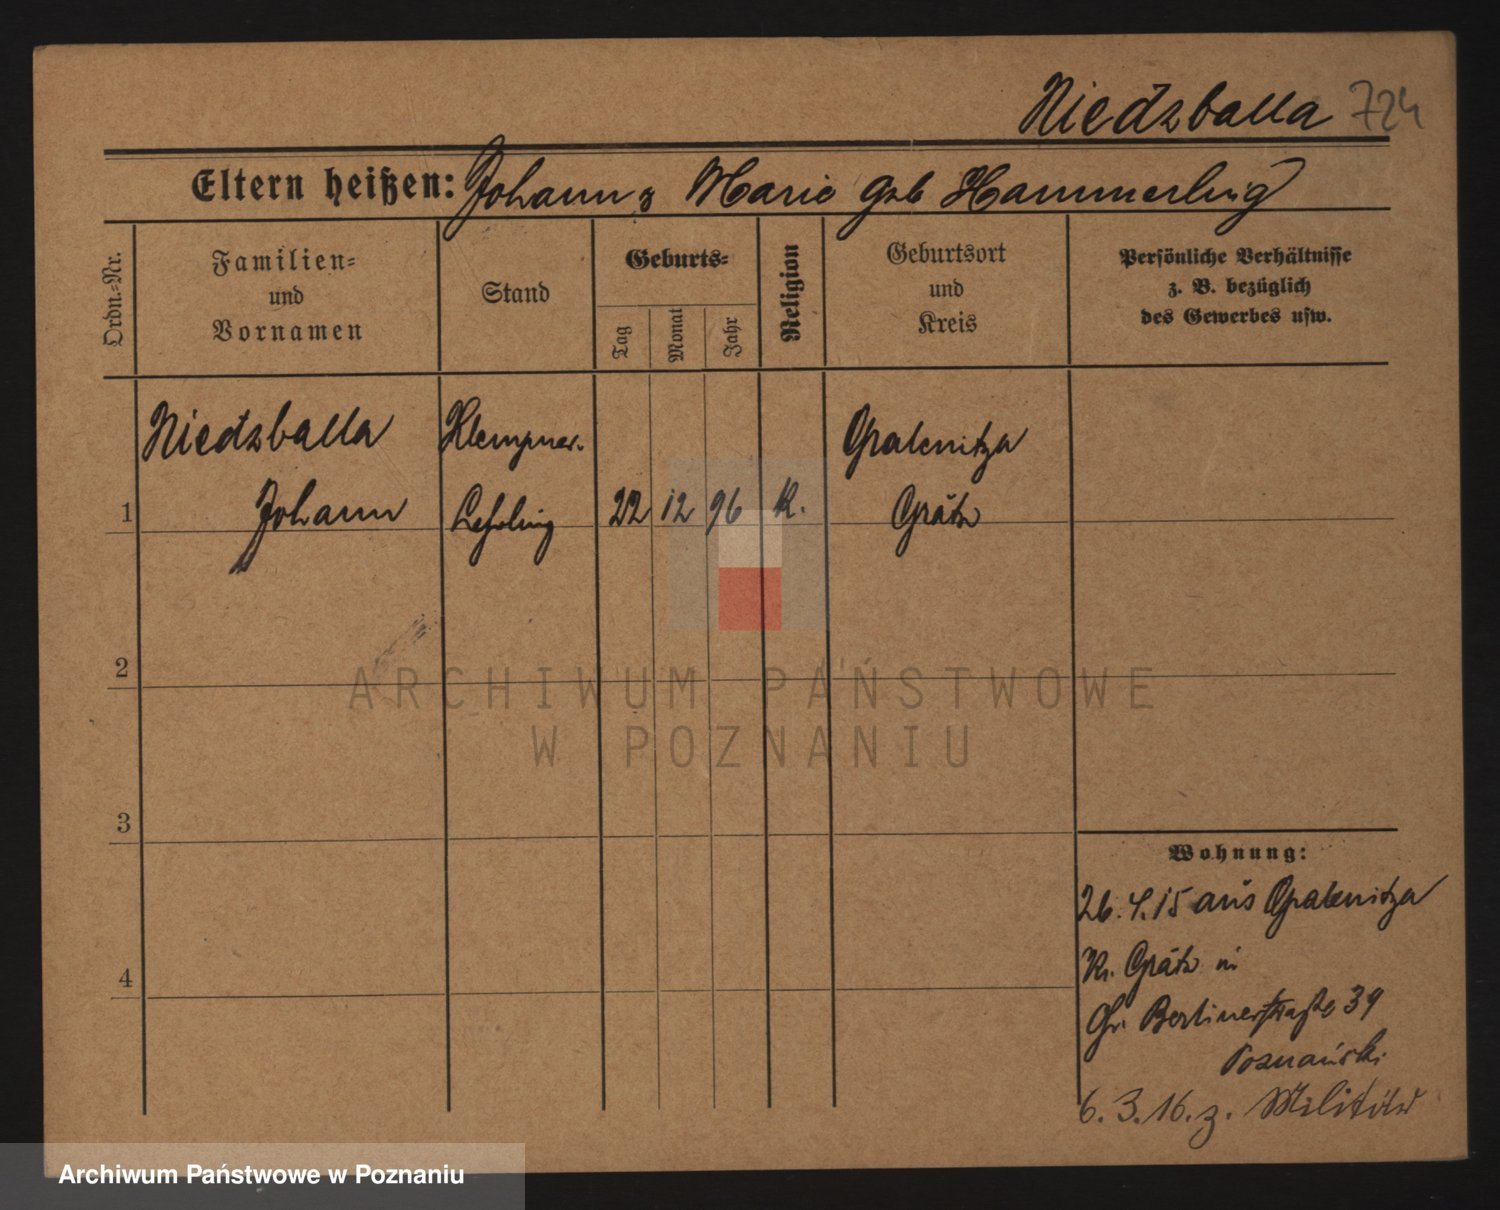 Niedzballa 724
Eltern heißen: Johann & Marie geb Hammerling
Ordn.-Nr.
Familien- und Vornamen
Stand
Geburts-
Tag
Monat
Jahr
Religion
Geburtsort und Kreis
Persönliche Verhältnisse
z. B. bezüglich
des Gewerbes usw.
Niedzballa Klempner- Opalenitza
1 Johann Lehrling 22 12 96 K. Grätz
2
3
4
ARCHIWUM PAŃSTWOWE
W POZNANIU
Wohnung:
26.4.15 aus Opalenitza
Kr. Grätz in
Gr. Berlinerstraße 39
Poznański
6.3.16. z. Militär
Archiwum Państwowe w Poznaniu